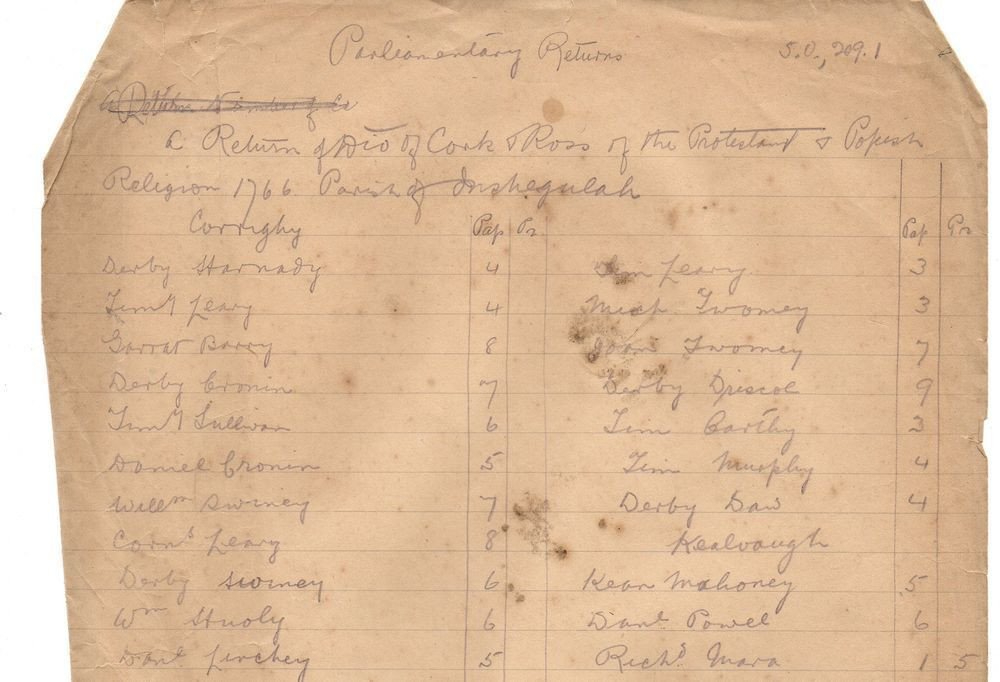 Parliamentary Returns S.O., 209.1
a Return Number of
a Return of Dio of Cork & Ross of the Protestant & Popish
Religion 1766 Parish of Inshegulah
Corrighy Pap Pr Pap Pr
Derby Harnady 4 Tim Leary 3
Timy Leary 4 Mich Twomey 3
Garrat Barry 8 Joan Twomey 7
Derby Cronin 7 Derby Driscol 9
Timy Sullivan 6 Tim Carthy 3
Daniel Cronin 5 Tim Murphy 4
Willm Swiney 7 Derby Daw 4
Corns Leary 8 Kealvaugh
Derby Swiney 6 Kean Mahoney 5
Wm Huoly 6 Danl Powel 6
Danl Linchey 5 Richd Mara 1 5